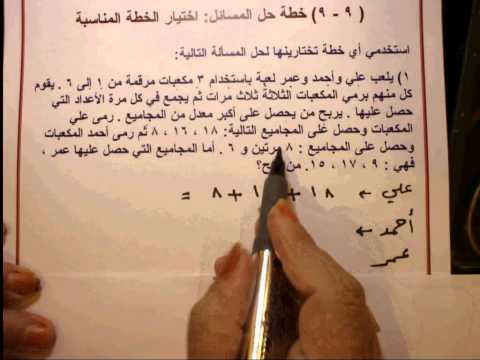 ( ٩ - ٩ ) خطة حل المسائل: اختيار الخطة المناسبة
استخدمي أي خطة تختارينها لحل المسألة التالية:
١) يلعب علي وأحمد وعمر لعبة باستخدام ٣ مكعبات مرقمة من ١ إلى ٦ . يقوم
كل منهم برمي المكعبات الثلاثة ثلاث مرات ثم يجمع في كل مرة الأعداد التي
حصل عليها . يربح من يحصل على أكبر معدل من المجاميع . رمى علي
المكعبات وحصل على المجاميع التالية: ١٨ ، ١٦ ، ٨ ثم رمى أحمد المكعبات
وحصل على المجاميع : ٨ مرتين و ٦ . أما المجاميع التي حصل عليها عمر ،
فهي : ٩ ، ١٧ ، ١٥ . من
علي ← ١٨ + ١ + ٨ =
أحمد ←
عمر